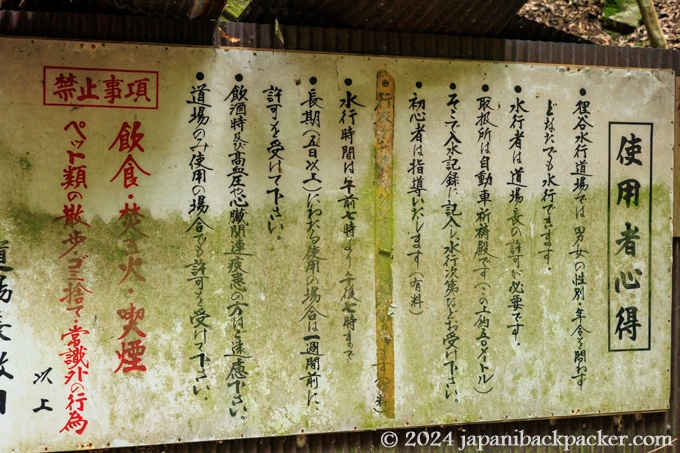 使用者心得
●狸谷水行道場では、男女の性別、年令を問わず
どなたでも水行できます。
●水行者は道場長の許可が必要です。
●取扱所は自動車祈祷殿です(この上約五〇メートル)
●そこで入水記録に記入し水行次第などお受け下さい。
初心者は指導いたします(有料)
●水行時間は午前七時より午後七時まで
●長期(五日以上)にわたる使用の場合は一週間前に
許可を受けて下さい。
●飲酒時及び高血圧や心臓関連疾患の方はご遠慮下さい。
●道場のみ使用の場合でも許可を受けて下さい。
禁止事項
飲食・焚き火・喫煙
ペット類の散歩・ゴミ捨て・常識外の行為
以上
道場長
© 2024 japanibackpacker.com